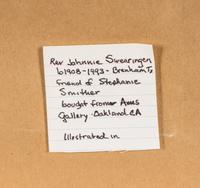 Rev Johnnie Swearingen
b1908-1993-Brenham, Tx
friend of Stephanie
Smither
bought from Ames
Gallery Oakland CA
Illustrated in